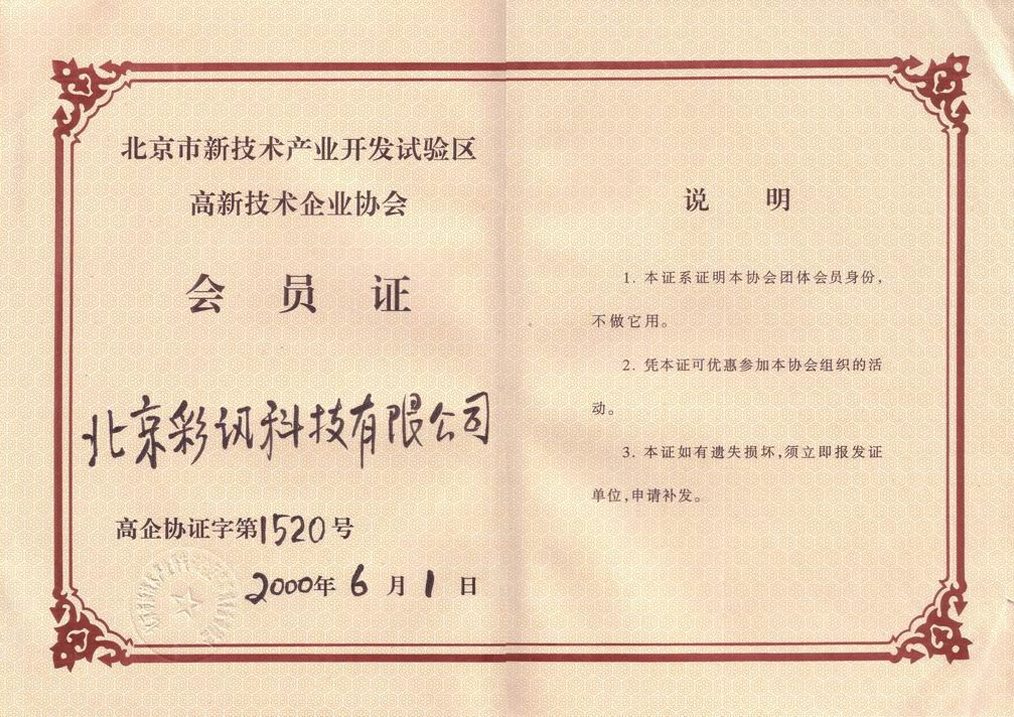 北京市新技术产业开发试验区
高新技术企业协会
会员证
北京彩讯科技有限公司
高企协证字第1520号
2000年6月1日
说明
1. 本证系证明本协会团体会员身份,
不做它用。
2. 凭本证可优惠参加本协会组织的活
动。
3. 本证如有遗失损坏,须立即报发证
单位,申请补发。